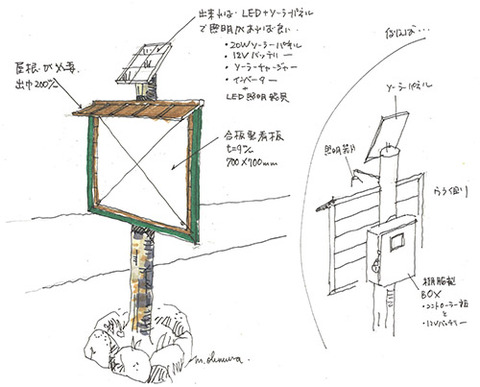 出来れば、LED+ソーラーパネル
で照明があれば良い
・20Wソーラーパネル
・12Vバッテリー
・ソーラーチャージャー
・インバーター
+
LED照明器具
屋根が必要
出巾200%
合板製看板
t=9%
900×900mm
なければ…
ソーラーパネル
照明器
うら側
樹脂製
BOX
・コントローラー類
と
・12Vバッテリー